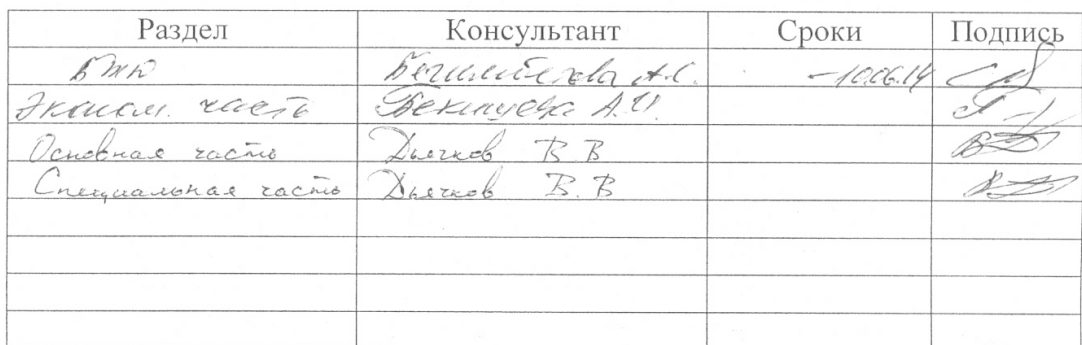 Раздел Консультант Сроки Подпись
БЖД А.С. -10.06.14
Эконом. часть А.И.
Основная часть Дьячков В В
Специальная часть Дьячков В. В